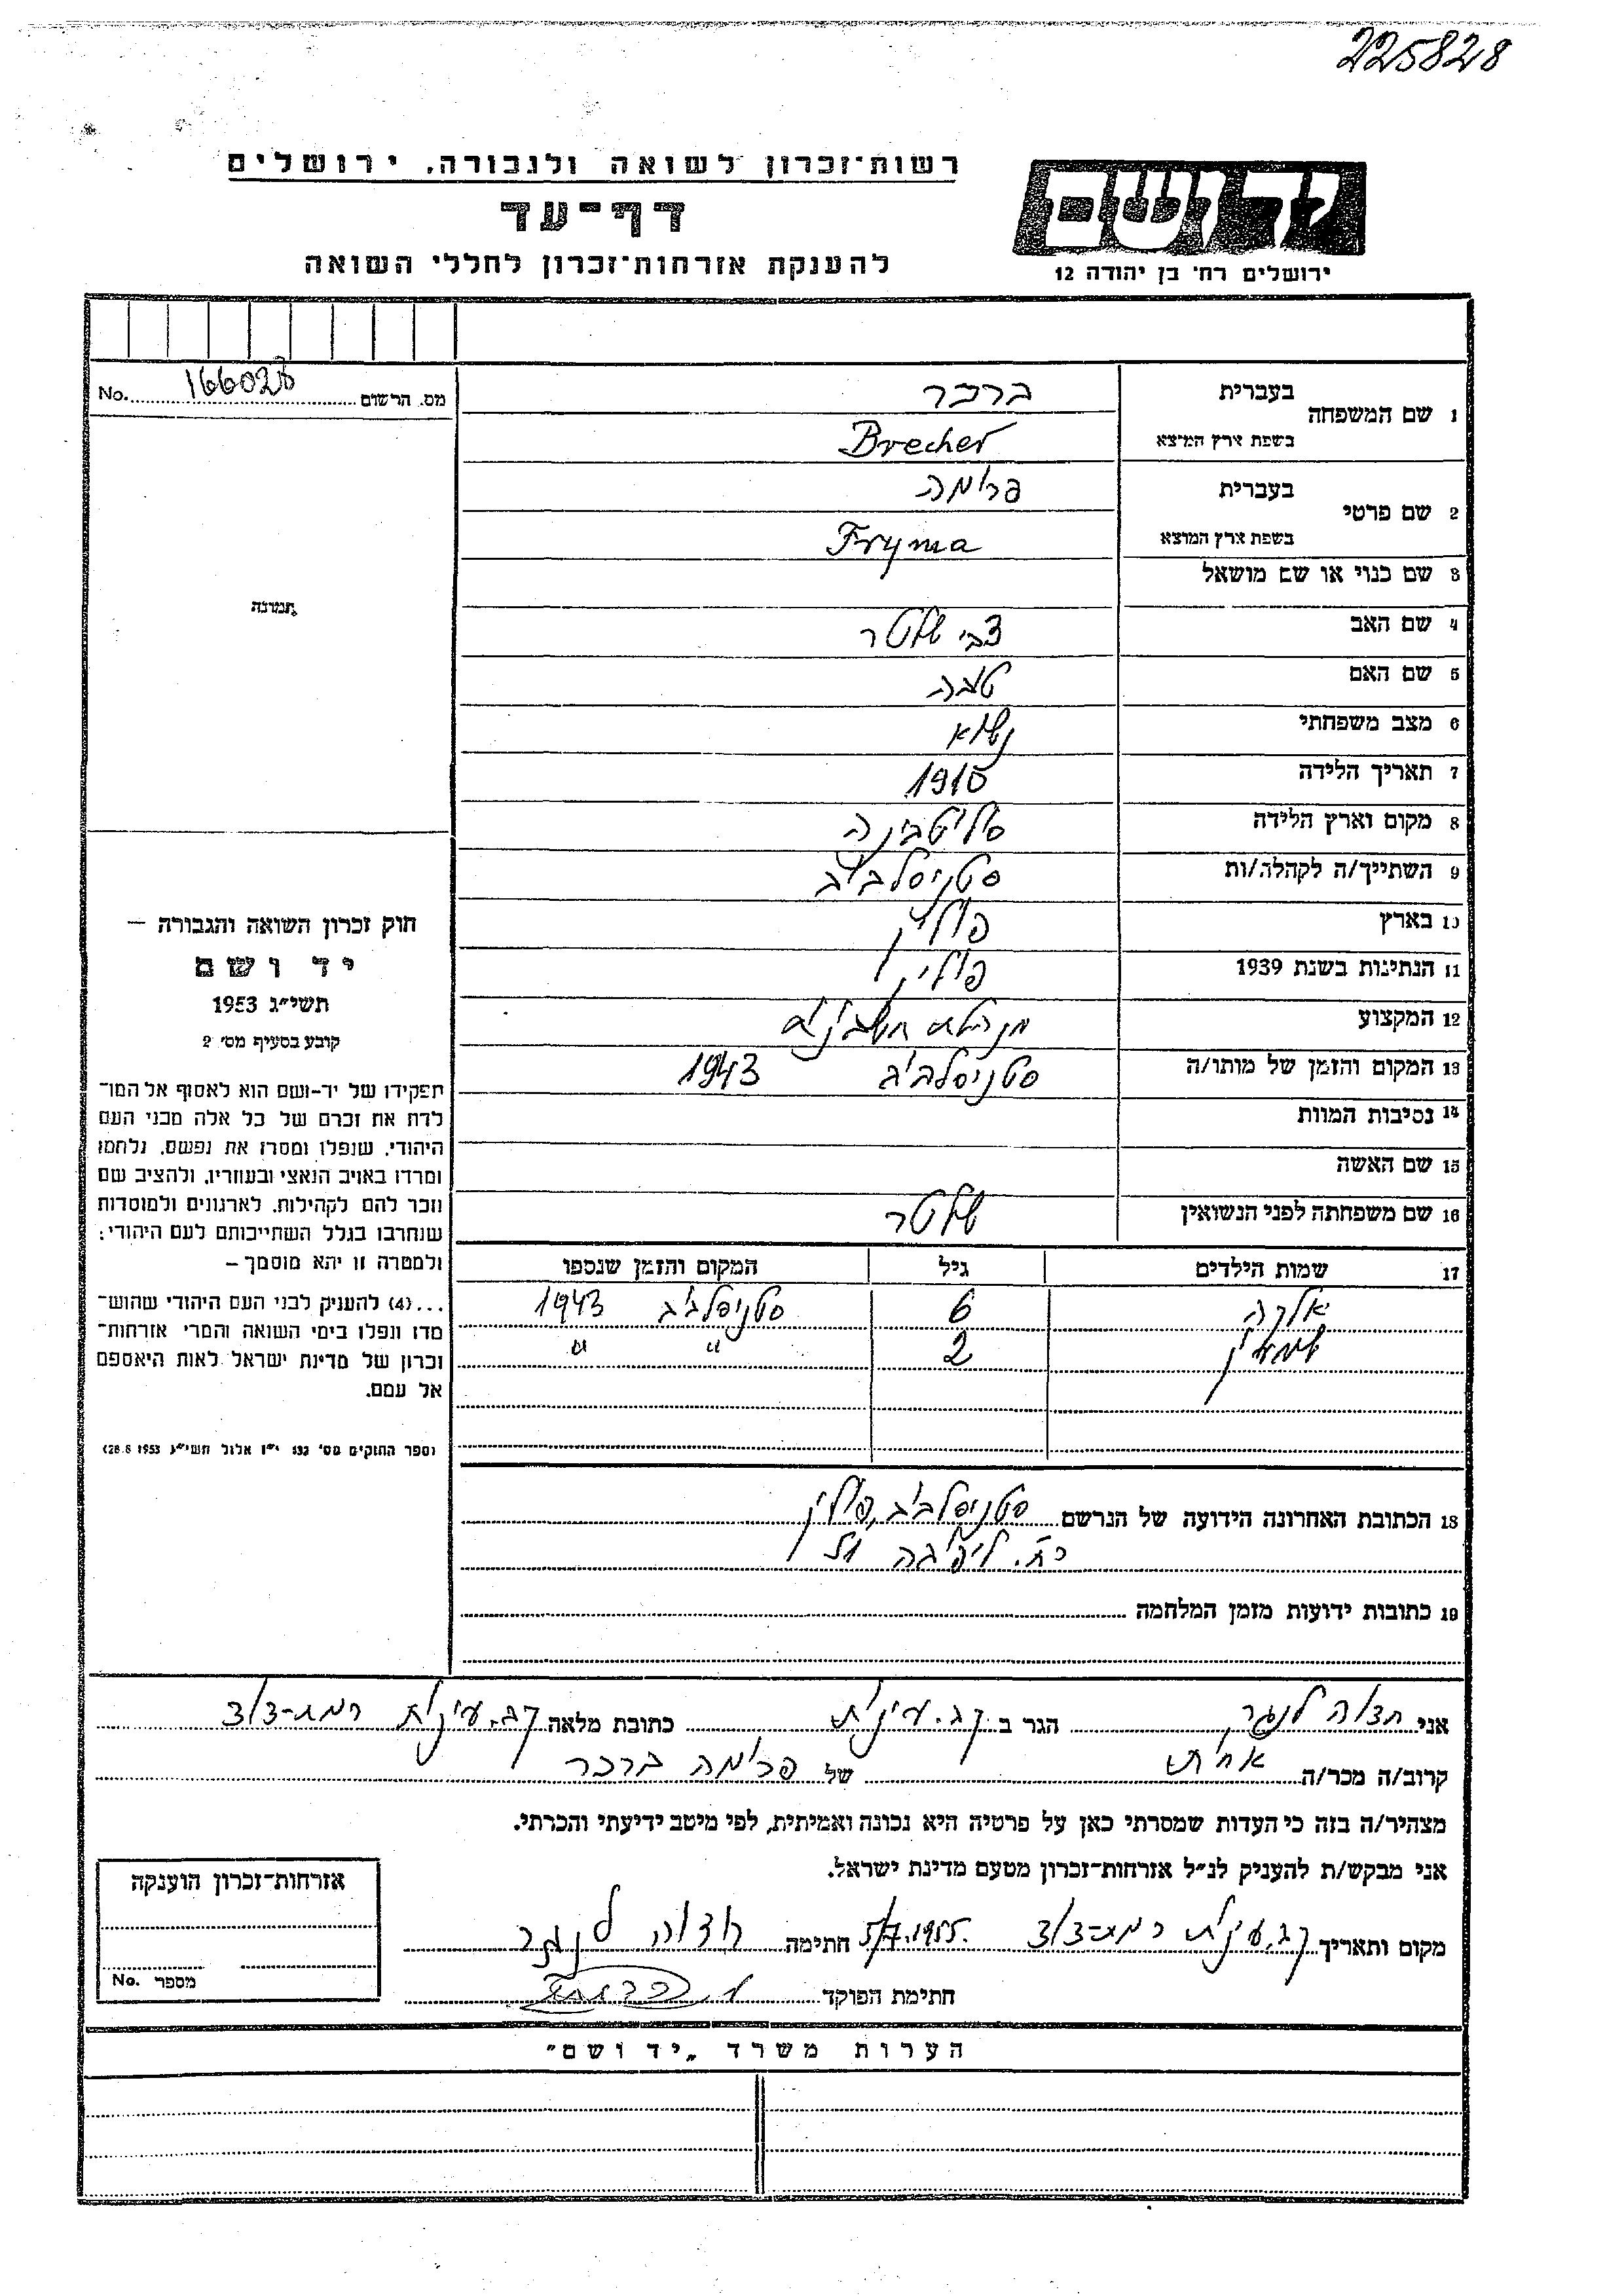 225828
רשות־זכרון לשואה ולגבורה, ירושלים
דף־עד
להענקת אזרחות־זכרון לחללי השואה
יד ושם
ירושלים רח' בן יהודה 12
מס. הרשום 166028 No.
1 שם המשפחה בעברית ברכר
בשפת ארץ המוצא Brecher
2 שם פרטי בעברית פרימה
בשפת ארץ המוצא Fryma
3 שם כנוי או שם מושאל
4 שם האב צבי שלטר
5 שם האם טובה
6 מצב משפחתי נשוא
7 תאריך הלידה 1910
8 מקום וארץ הלידה
9 השתייך/ה לקהלה/ות סטניסלביב
10 בארץ פולין
11 הנתינות בשנת 1939 פולין
12 המקצוע
13 המקום והזמן של מותו/ה סטניסלביב 1943
14 נסיבות המוות
15 שם האשה
16 שם משפחתה לפני הנשואין שלטר
17 שמות הילדים גיל המקום והזמן שנספו
6 סטניסלביב 1943
2 " "
18 הכתובת האחרונה הידועה של הנרשם סטניסלביב, פולין
רח.
19 כתובות ידועות מזמן המלחמה
תמונה
חוק זכרון השואה והגבורה –
יד ושם
תשי״ג 1953
קובע בסעיף מס' 2
תפקידו של יד-ושם הוא לאסוף אל המו־
לדת את זכרם של כל אלה מבני העם
היהודי, שנפלו ומסרו את נפשם, נלחמו
ומרדו באויב הנאצי ובעוזריו, ולהציב שם
וזכר להם לקהילות, לארגונים ולמוסדות
שנחרבו בגלל השתייכותם לעם היהודי;
ולמטרה זו יהא מוסמך –
...(4) להעניק לבני העם היהודי שהוש־
מדו ונפלו בימי השואה והמרי אזרחות־
זכרון של מדינת ישראל לאות היאספם
אל עמם.
(ספר החוקים מס' 132 י״ז אלול תשי״ג 28.8.1953)
אני חדוה לנגר הגר ב קב. עינת כתובת מלאה קב. עינת
קרוב/ה מכר/ה אחות של פרימה ברכר
מצהיר/ה בזה כי העדות שמסרתי כאן על פרטיה היא נכונה ואמיתית, לפי מיטב ידיעתי והכרתי.
אני מבקש/ת להעניק לנ״ל אזרחות־זכרון מטעם מדינת ישראל.
מקום ותאריך קב. עינת 5/7.1955 חתימה חדוה לנגר
חתימת הפוקד
אזרחות־זכרון הוענקה
מספר No.
הערות משרד „יד ושם"